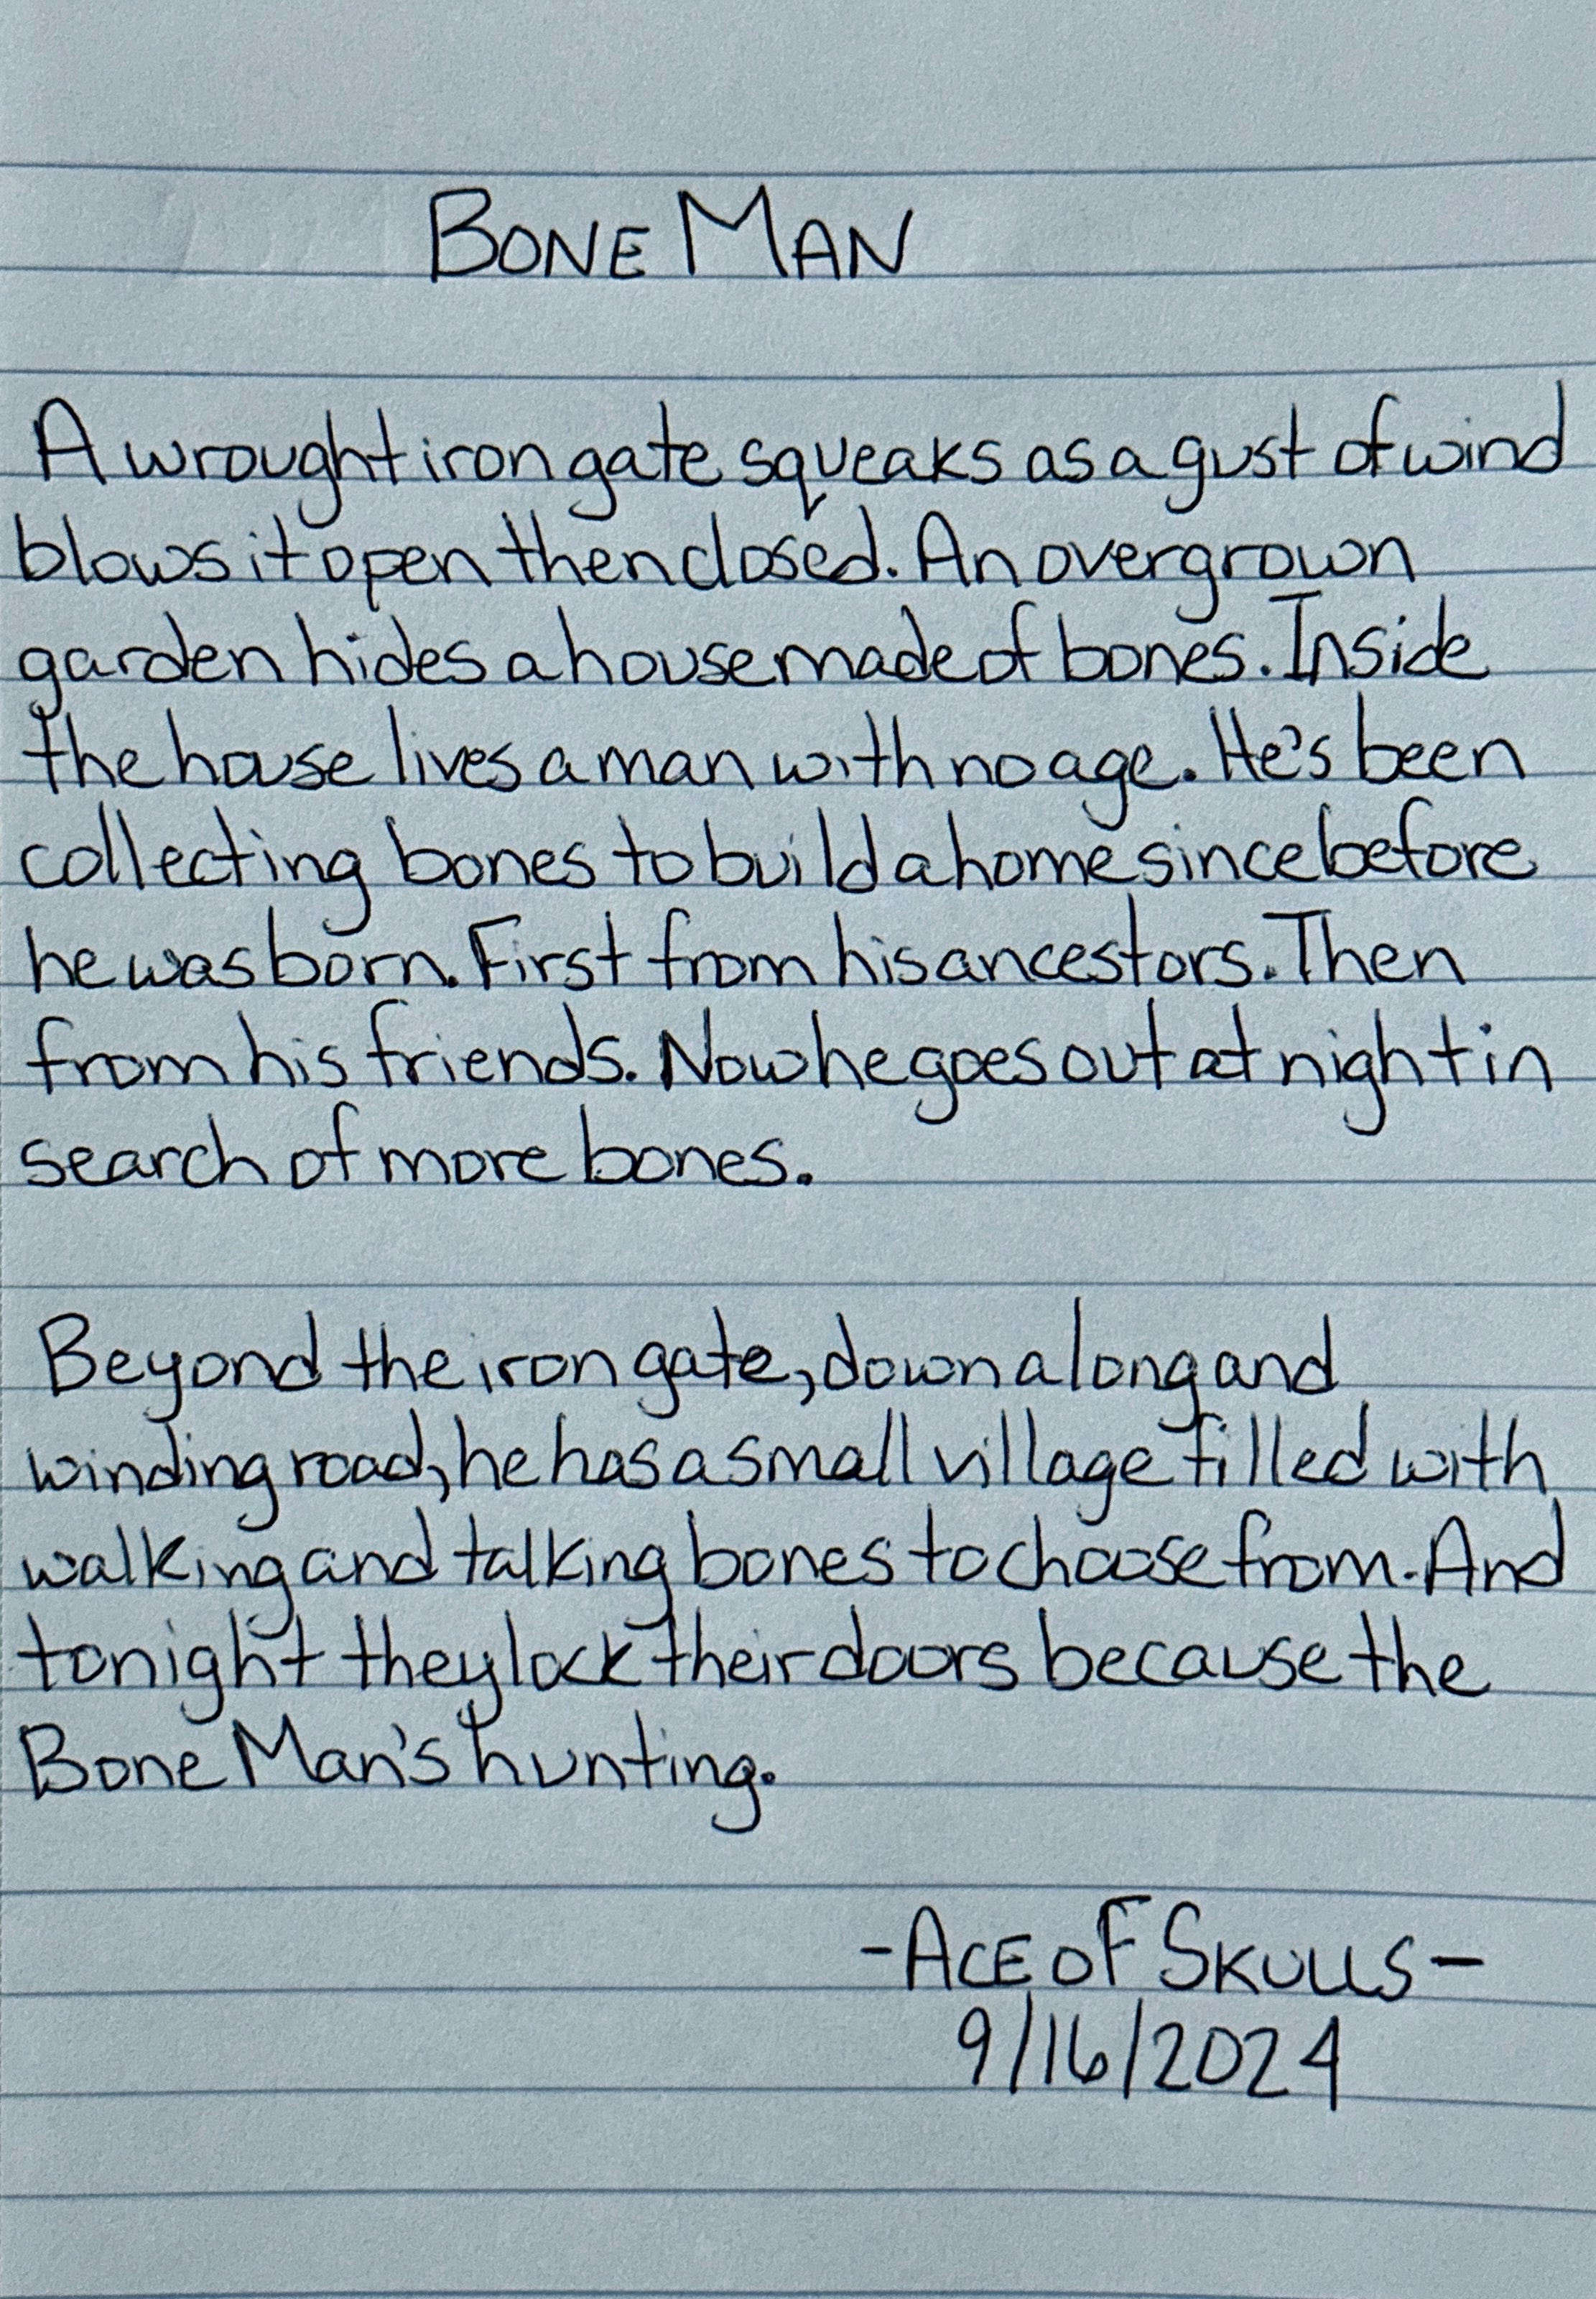 BONE MAN
A wrought iron gate squeaks as a gust of wind
blows it open then closed. An overgrown
garden hides a house made of bones. Inside
the house lives a man with no age. He's been
collecting bones to build a home since before
he was born. First from his ancestors. Then
from his friends. Now he goes out at night in
search of more bones.
Beyond the iron gate, down a long and
winding road, he has a small village filled with
walking and talking bones to choose from. And
tonight they lock their doors because the
Bone Man's hunting.
-ACE OF SKULLS-
9/16/2024